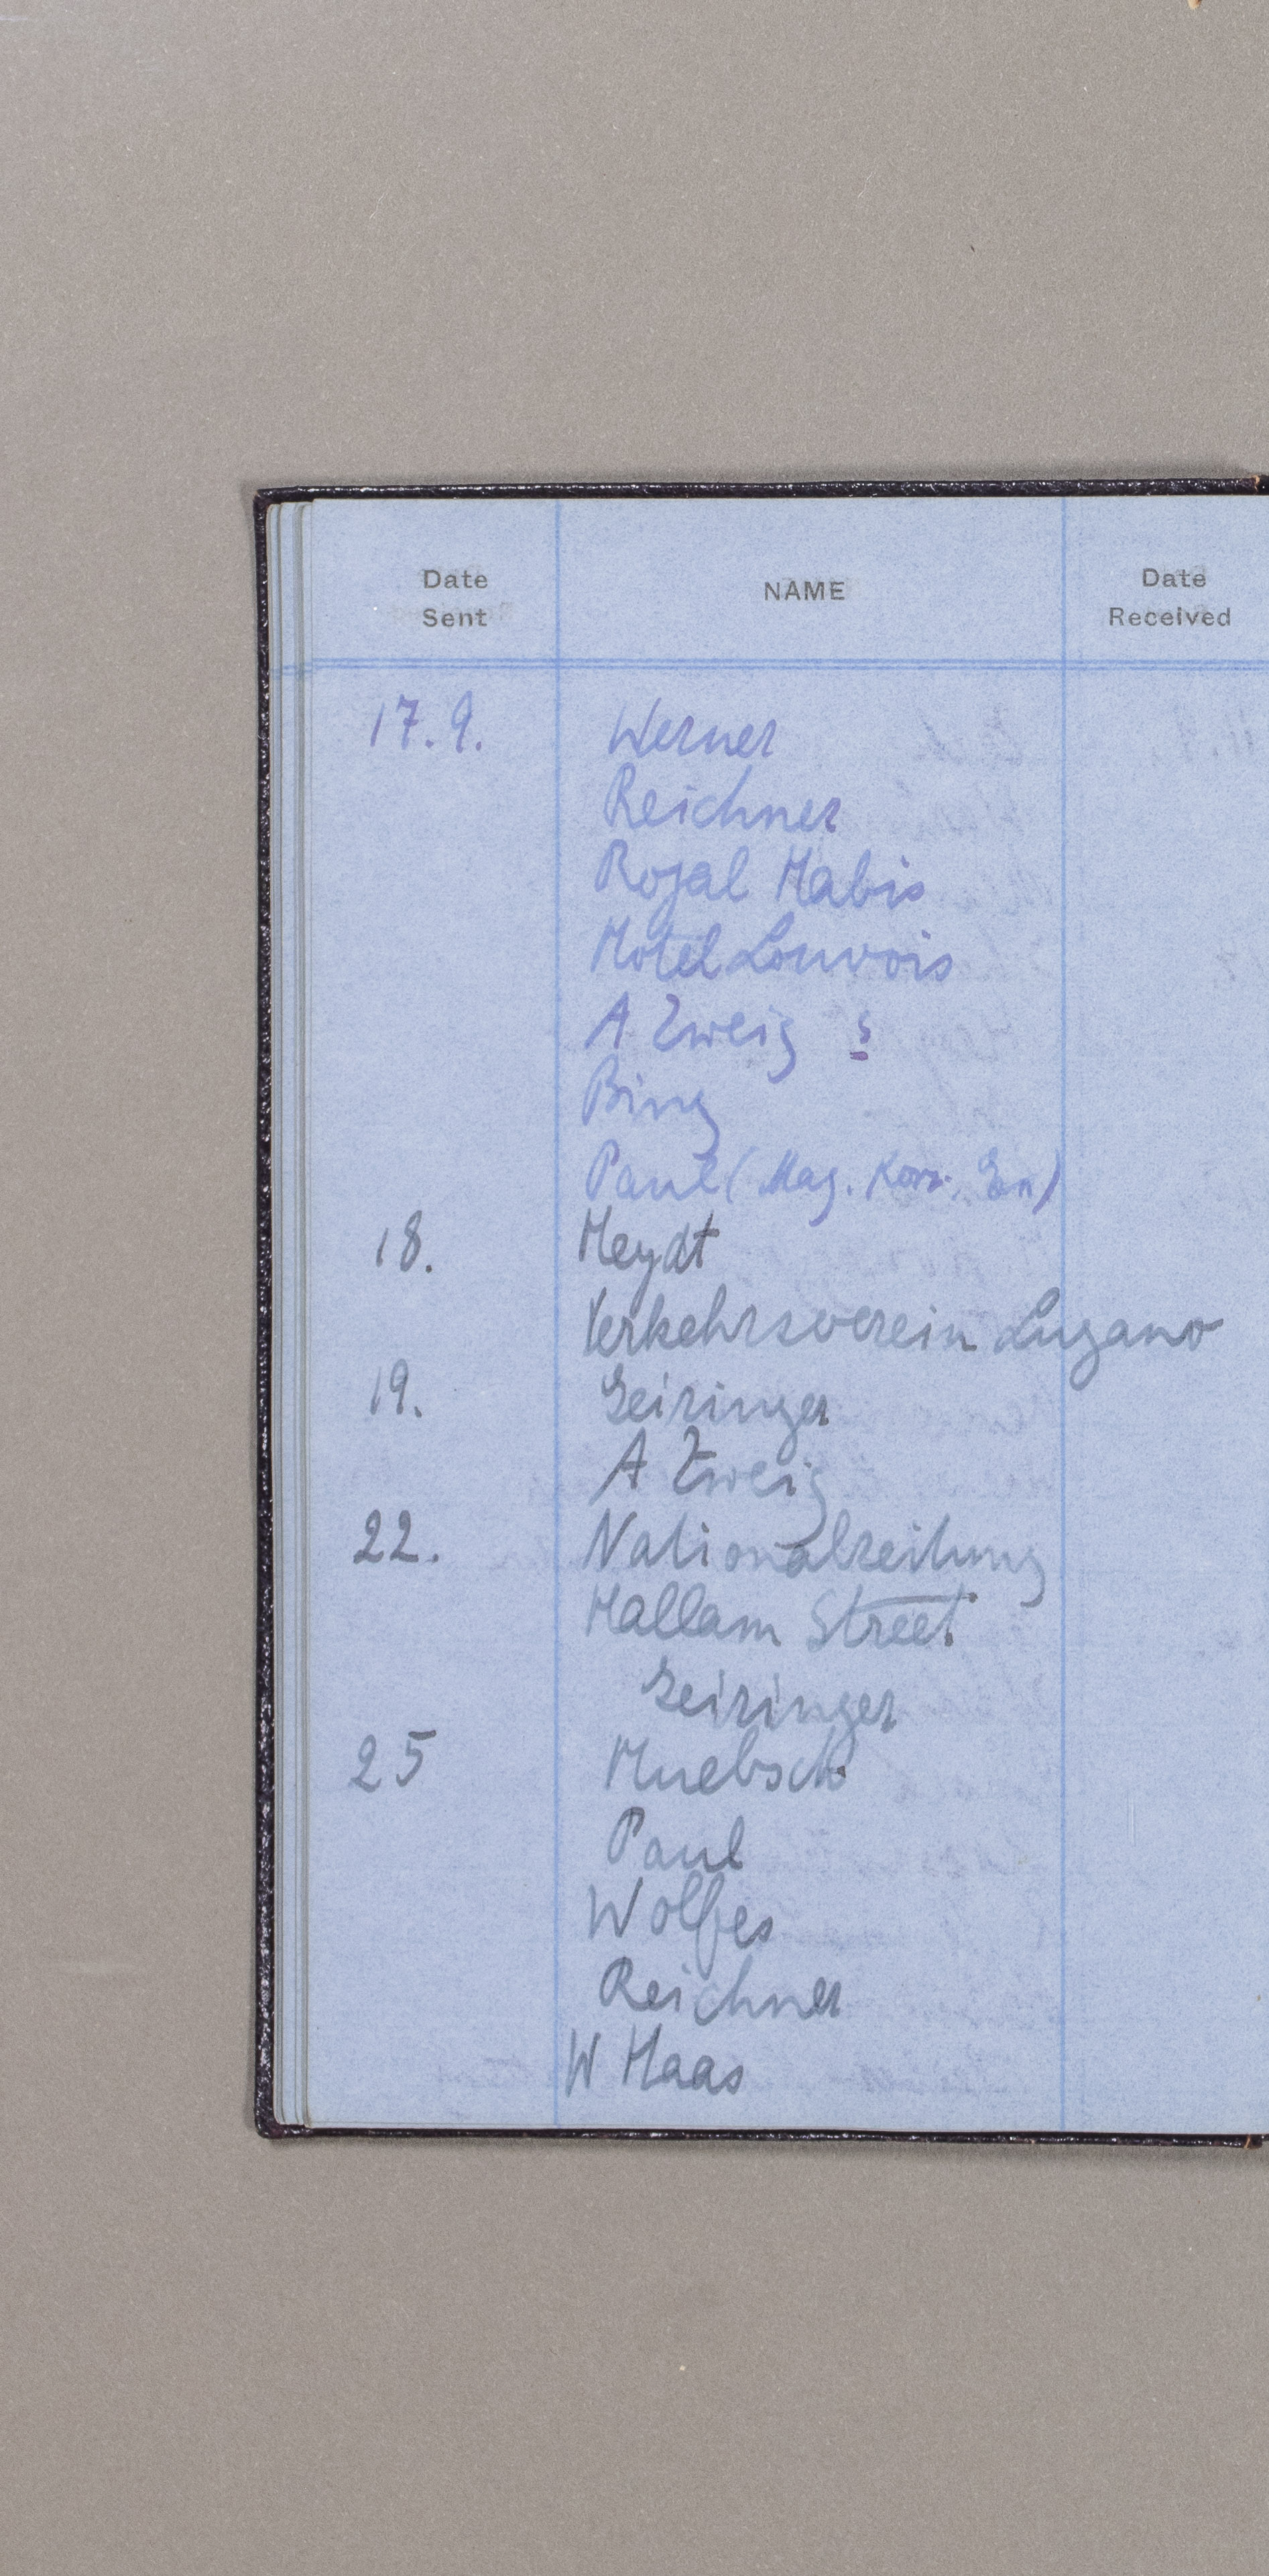 Date Sent NAME Date Received
17.9. Werner
Reichner
Royal Habis
Hotel Louvois
A Zweig s
Bing
Paul (Mag. Korr.
18. Heydt
Verkehrsverein Lugano
19. Geiringer
A Zweig
22. Nationalzeitung
Hallam Street
Geiringer
25 Huebsch
Paul
Wolfes
Reichner
W Haas